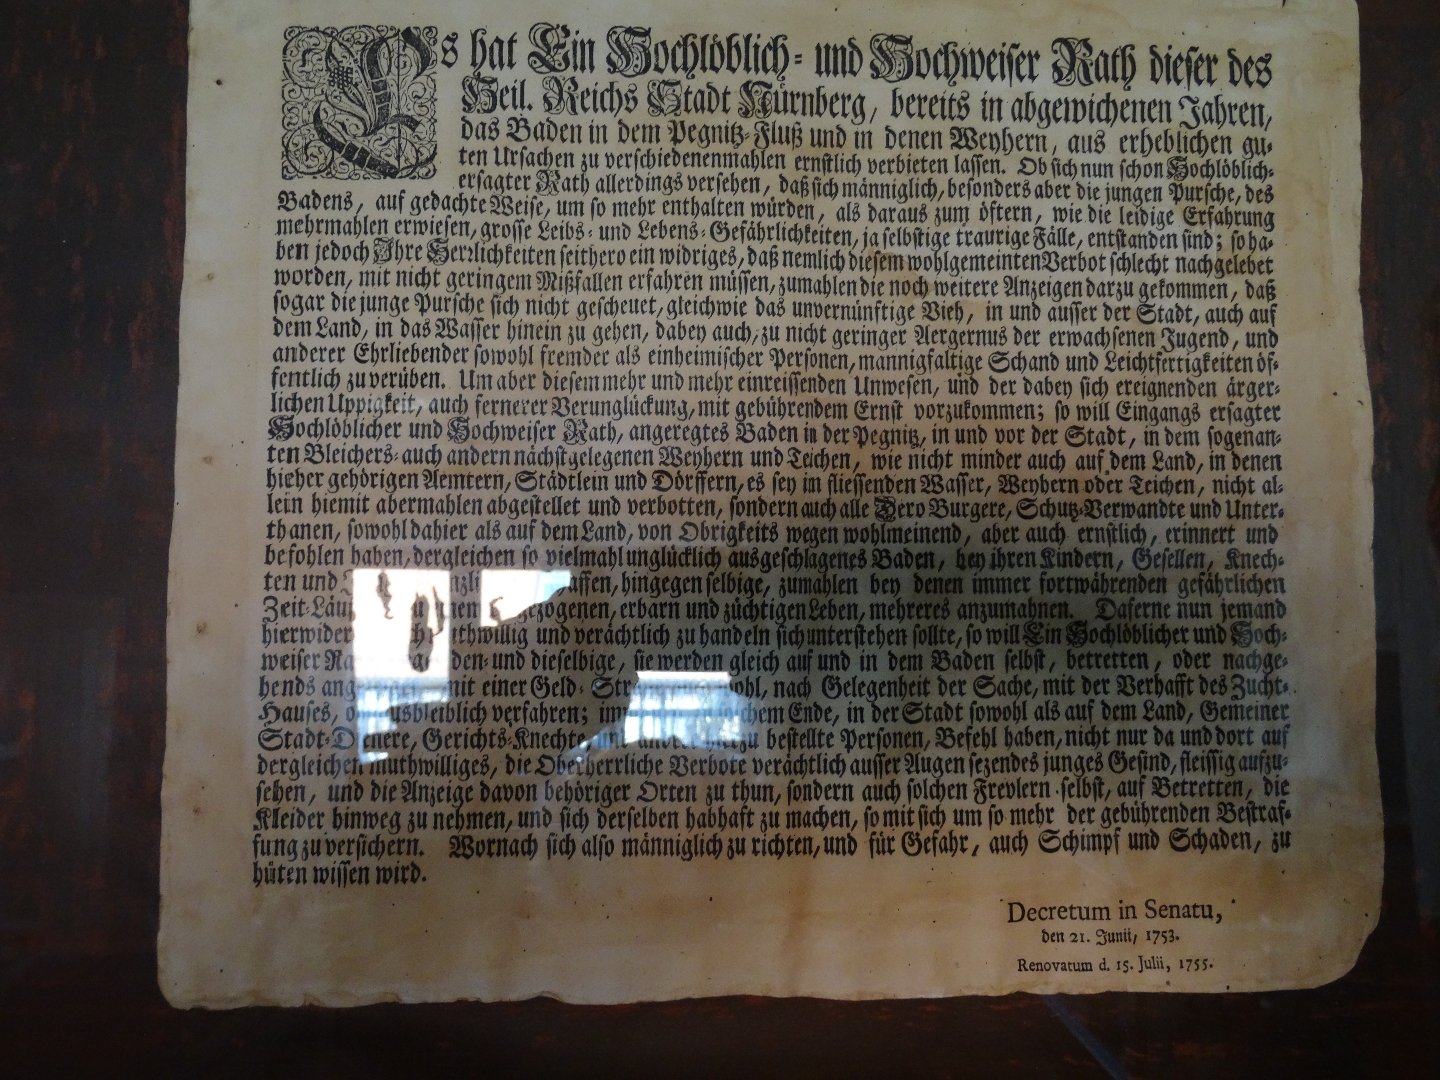 Es hat Ein Hochlöblich- und Hochweiser Rath dieser des
Heil. Reichs Stadt Nürnberg, bereits in abgewichenen Jahren,
das Baden in dem Pegnitz-Fluß und in denen Weyhern, aus erheblichen gu-
ten Ursachen zu verschiedenenmahlen ernstlich verbieten lassen. Ob sich nun schon Hochlöblich-
ersagter Rath allerdings versehen, daß sich männiglich, besonders aber die jungen Pursche, des
Badens, auf gedachte Weise, um so mehr enthalten würden, als daraus zum öftern, wie die leidige Erfahrung
mehrmahlen erwiesen, grosse Leibs- und Lebens-Gefährlichkeiten, ja selbstige traurige Fälle, entstanden sind; so ha-
ben jedoch Ihre Herrlichkeiten seithero ein widriges, daß nemlich diesem wohlgemeinten Verbot schlecht nachgelebet
worden, mit nicht geringem Mißfallen erfahren müssen, zumahlen die noch weitere Anzeigen darzu gekommen, daß
sogar die junge Pursche sich nicht gescheuet, gleichwie das unvernünftige Vieh, in und ausser der Stadt, auch auf
dem Land, in das Wasser hinein zu gehen, dabey auch, zu nicht geringer Aergernus der erwachsenen Jugend, und
anderer Ehrliebender sowohl fremder als einheimischer Personen, mannigfaltige Schand und Leichtfertigkeiten öf-
fentlich zu verüben. Um aber diesem mehr und mehr einreissenden Unwesen, und der dabey sich ereignenden ärger-
lichen Uppigkeit, auch fernerer Verunglückung, mit gebührendem Ernst vorzukommen; so will Eingangs ersagter
Hochlöblicher und Hochweiser Rath, angeregtes Baden in der Pegnitz, in und vor der Stadt, in dem sogenan-
ten Bleichers- auch andern nächstgelegenen Weyhern und Teichen, wie nicht minder auch auf dem Land, in denen
hieher gehörigen Aemtern, Städtlein und Dörffern, es sey im fliessenden Wasser, Weyhern oder Teichen, nicht al-
lein hiemit abermahlen abgestellet und verbotten, sondern auch alle Dero Burgere, Schutz-Verwandte und Unter-
thanen, sowohl dahier als auf dem Land, von Obrigkeits wegen wohlmeinend, aber auch ernstlich, erinnert und
befohlen haben, dergleichen so vielmahl unglücklich ausgeschlagenes Baden, bey ihren Kindern, Gesellen, Knech-
ten und hingegen selbige, zumahlen bey denen immer fortwährenden gefährlichen
Zeit- erbarn und züchtigen Leben, mehreres anzumahnen. Daferne nun jemand
hierwider und verächtlich zu handeln sich unterstehen sollte, so will Ein Hochlöblicher und Hoch-
weiser und dieselbige, sie werden gleich auf und in dem Baden selbst, betretten, oder nachge-
hends mit einer Geld- nach Gelegenheit der Sache, mit der Verhafft des Zucht-
Hauses, verfahren; Ende, in der Stadt sowohl als auf dem Land, Gemeiner
Stadt-Dienere, Gerichts-Knechte, und bestellte Personen, Befehl haben, nicht nur da und dort auf
dergleichen muthwilliges, die Oberherrliche Verbote verächtlich ausser Augen sezendes junges Gesind, fleissig aufzu-
sehen, und die Anzeige davon behöriger Orten zu thun, sondern auch solchen Frevlern selbst, auf Betretten, die
Kleider hinweg zu nehmen, und sich derselben habhaft zu machen, somit sich um so mehr der gebührenden Bestraf-
fung zu versichern. Wornach sich also männiglich zu richten, und für Gefahr, auch Schimpf und Schaden, zu
hüten wissen wird.
Decretum in Senatu,
den 21. Junii, 1753.
Renovatum d. 15. Julii, 1755.